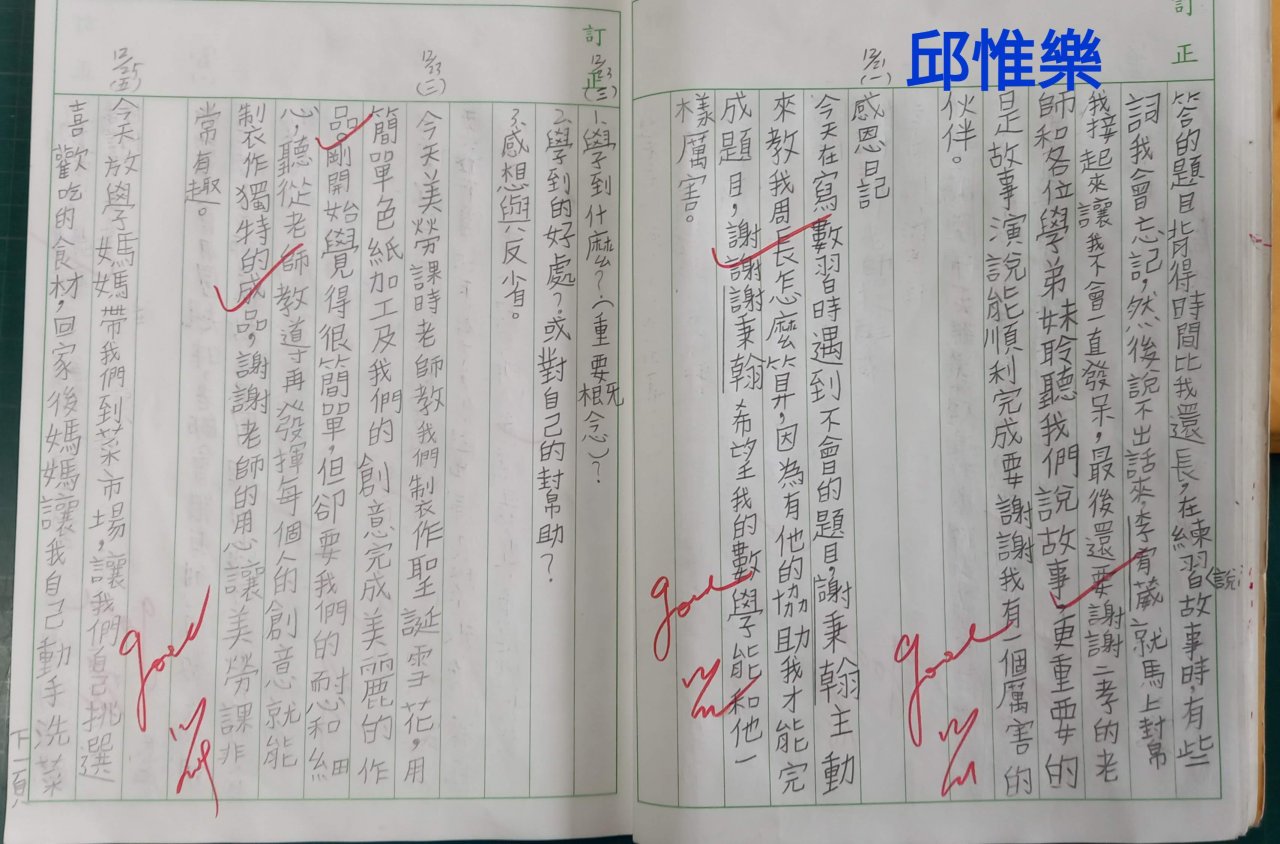 邱惟樂
訂正
答的題目背得時間比我還長，在練習說故事時，有些
詞我會忘記，然後說不出話來，李宥葳就馬上幫
我接起來讓我不會一直發呆，最後還要謝謝二孝的老
師和各位學弟妹聆聽我們說故事，更重要的
是故事演說能順利完成要謝謝我有一個厲害的
伙伴。
12/21(一)
感恩日記
今天在寫數習時遇到不會的題目，謝秉翰主動
來教我周長怎麼算，因為有他的協助我才能完
成題目，謝謝謝秉翰希望我的數學能和他一
樣厲害。
good
good
訂正
12/23(三)
1.學到什麼？(重要概念)？
2.學到的好處？或對自己的幫助？
3.感想與反省。
12/23(三)
今天美勞課時老師教我們製作聖誕雪花，用
簡單色紙加工及我們的創意完成美麗的作
品。剛開始覺得很簡單，但卻要我們的耐心和細
心，聽從老師教導再發揮每個人的創意就能
製作獨特的成品，謝謝老師的用心讓美勞課非
常有趣。
good
12/25(五)
今天放學媽媽帶我們到菜市場，讓我們自己挑選
喜歡吃的食材，回家後媽媽讓我自己動手洗菜
下一頁